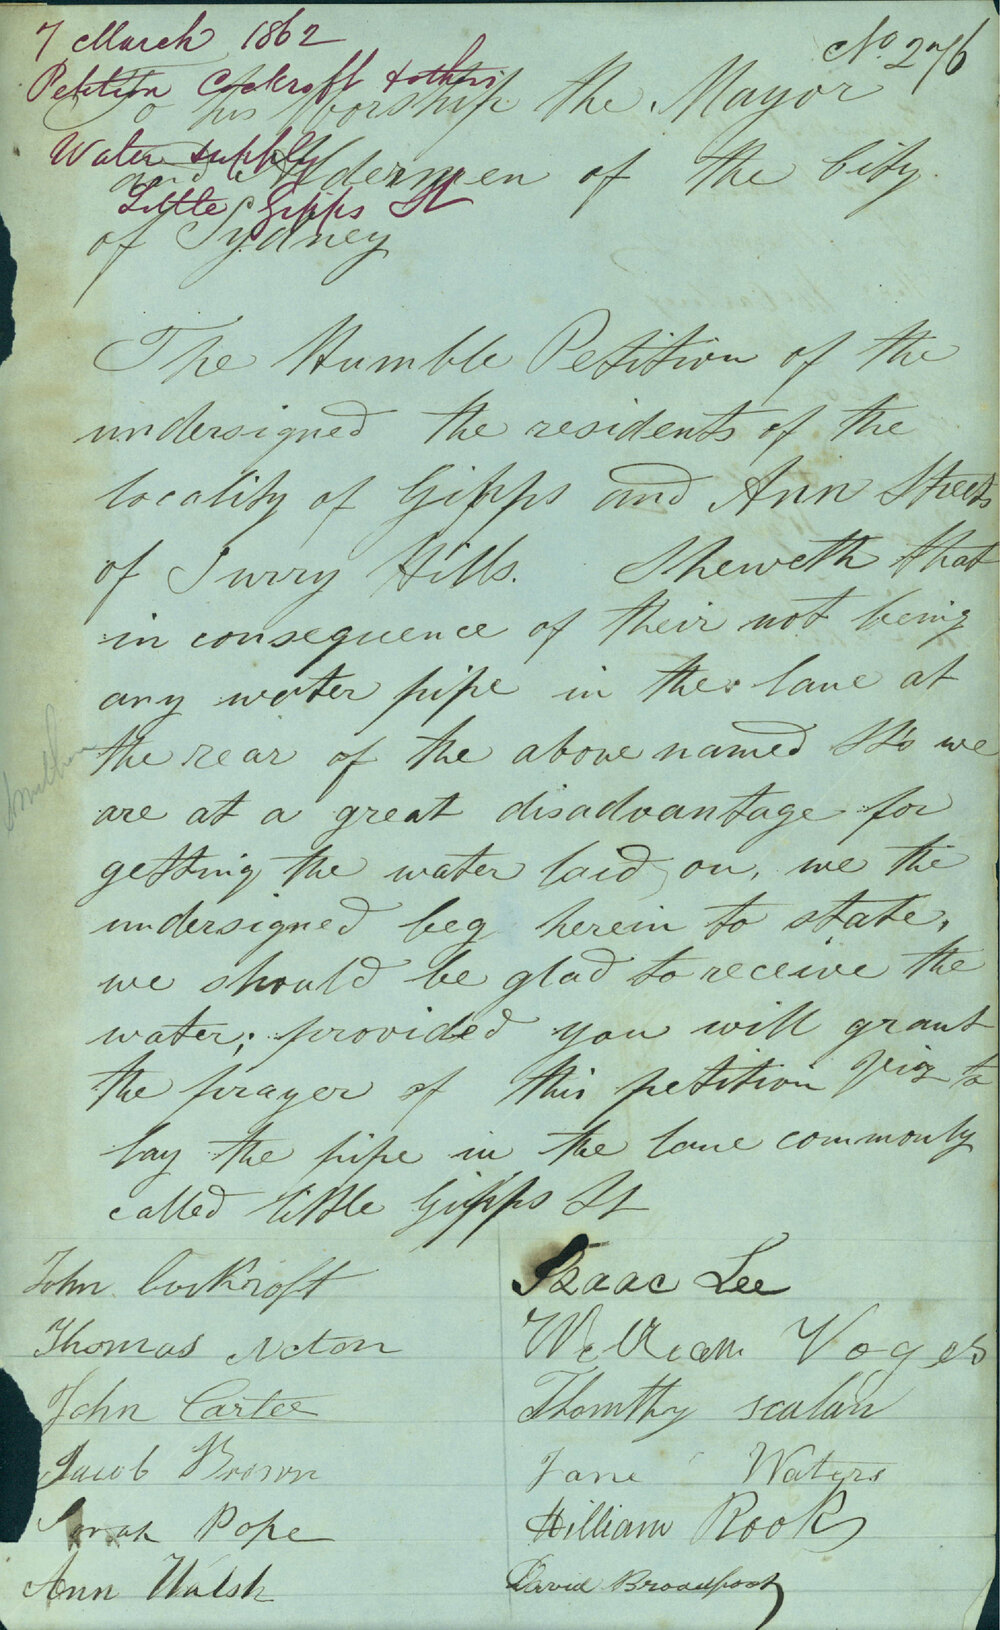 7 March 1862
No. 276
Petition Cockroft & others
To his Worship the Mayor
Water supply
and Aldermen of the City
Little Gipps St
of Sydney
The Humble Petition of the
undersigned the residents of the
locality of Gipps and Ann Streets
of Surry Hills. Sheweth that
in consequence of their not being
any water pipe in the lane at
the rear of the above named Sts we
are at a great disadvantage for
getting the water laid on, we the
undersigned beg herein to state,
we should be glad to receive the
water; provided you will grant
the prayer of this petition viz to
lay the pipe in the lane commonly
called little Gipps St
John Cockroft
Isaac Lee
Thomas Acton
William Voges
John Carter
Thomthy scalan
Jacob Brown
Jane Waters
Sarah Pope
William Rook
Ann Walsh
David Broadfoot